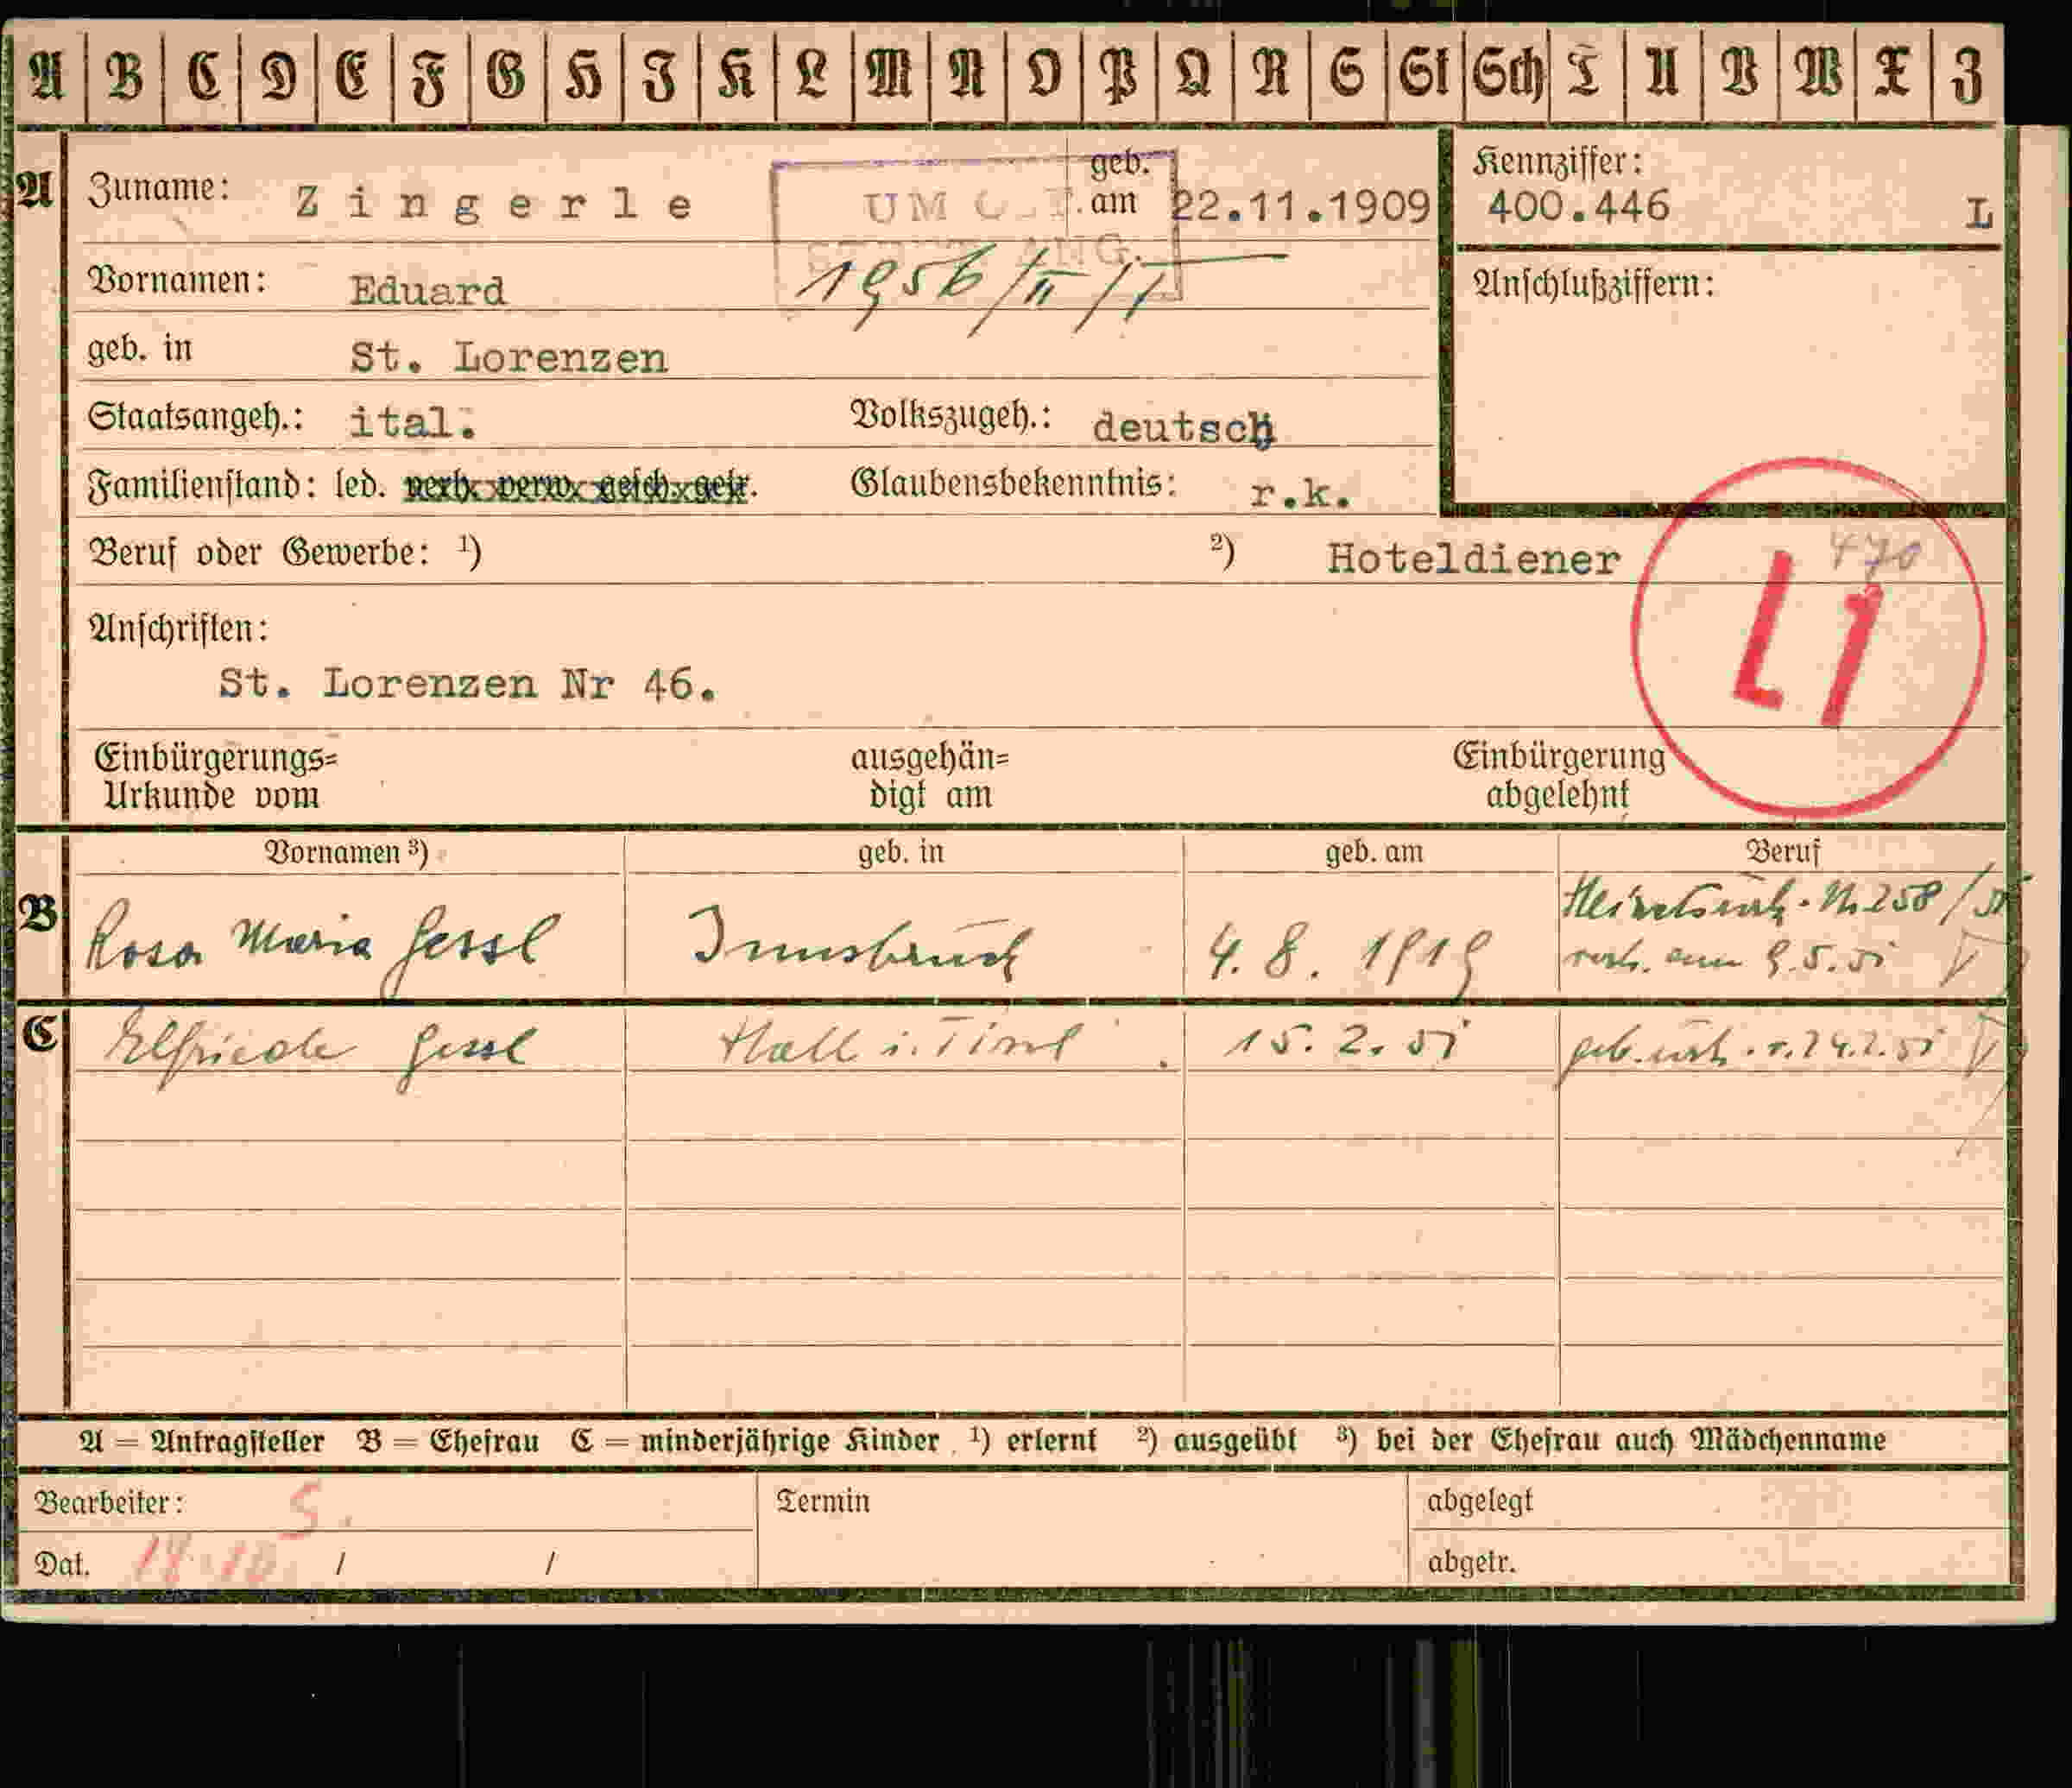 A B C D E F G H I K L M N O P Q R S St Sch T U V W X Z
A
Zuname: Zingerle geb. am 22.11.1909
Kennziffer:
400.446 L
Vornamen: Eduard
1956/II/
Anschlußziffern:
geb. in St. Lorenzen
Staatsangeh.: ital. Volkszugeh.: deutsch
Familienstand: led. verh. verw. gesch. getr. Glaubensbekenntnis: r.k.
Beruf oder Gewerbe: ¹) ²) Hoteldiener
470
L1
Anschriften:
St. Lorenzen Nr 46.
Einbürgerungs= ausgehän= Einbürgerung
Urkunde vom digt am abgelehnt
Vornamen ³) geb. in geb. am Beruf
B Rosa Maria Gessl Innsbruck 4. 8. 1919 Heiratsurk. Nr. 258/51
verh. am 9.5.51
C Elfriede Gessl Hall i. Tirol 15. 2. 51 geb. urk. v. 24.2.51
A = Antragsteller B = Ehefrau C = minderjährige Kinder ¹) erlernt ²) ausgeübt ³) bei der Ehefrau auch Mädchenname
Bearbeiter: S. Termin abgelegt
Dat. / / abgetr.